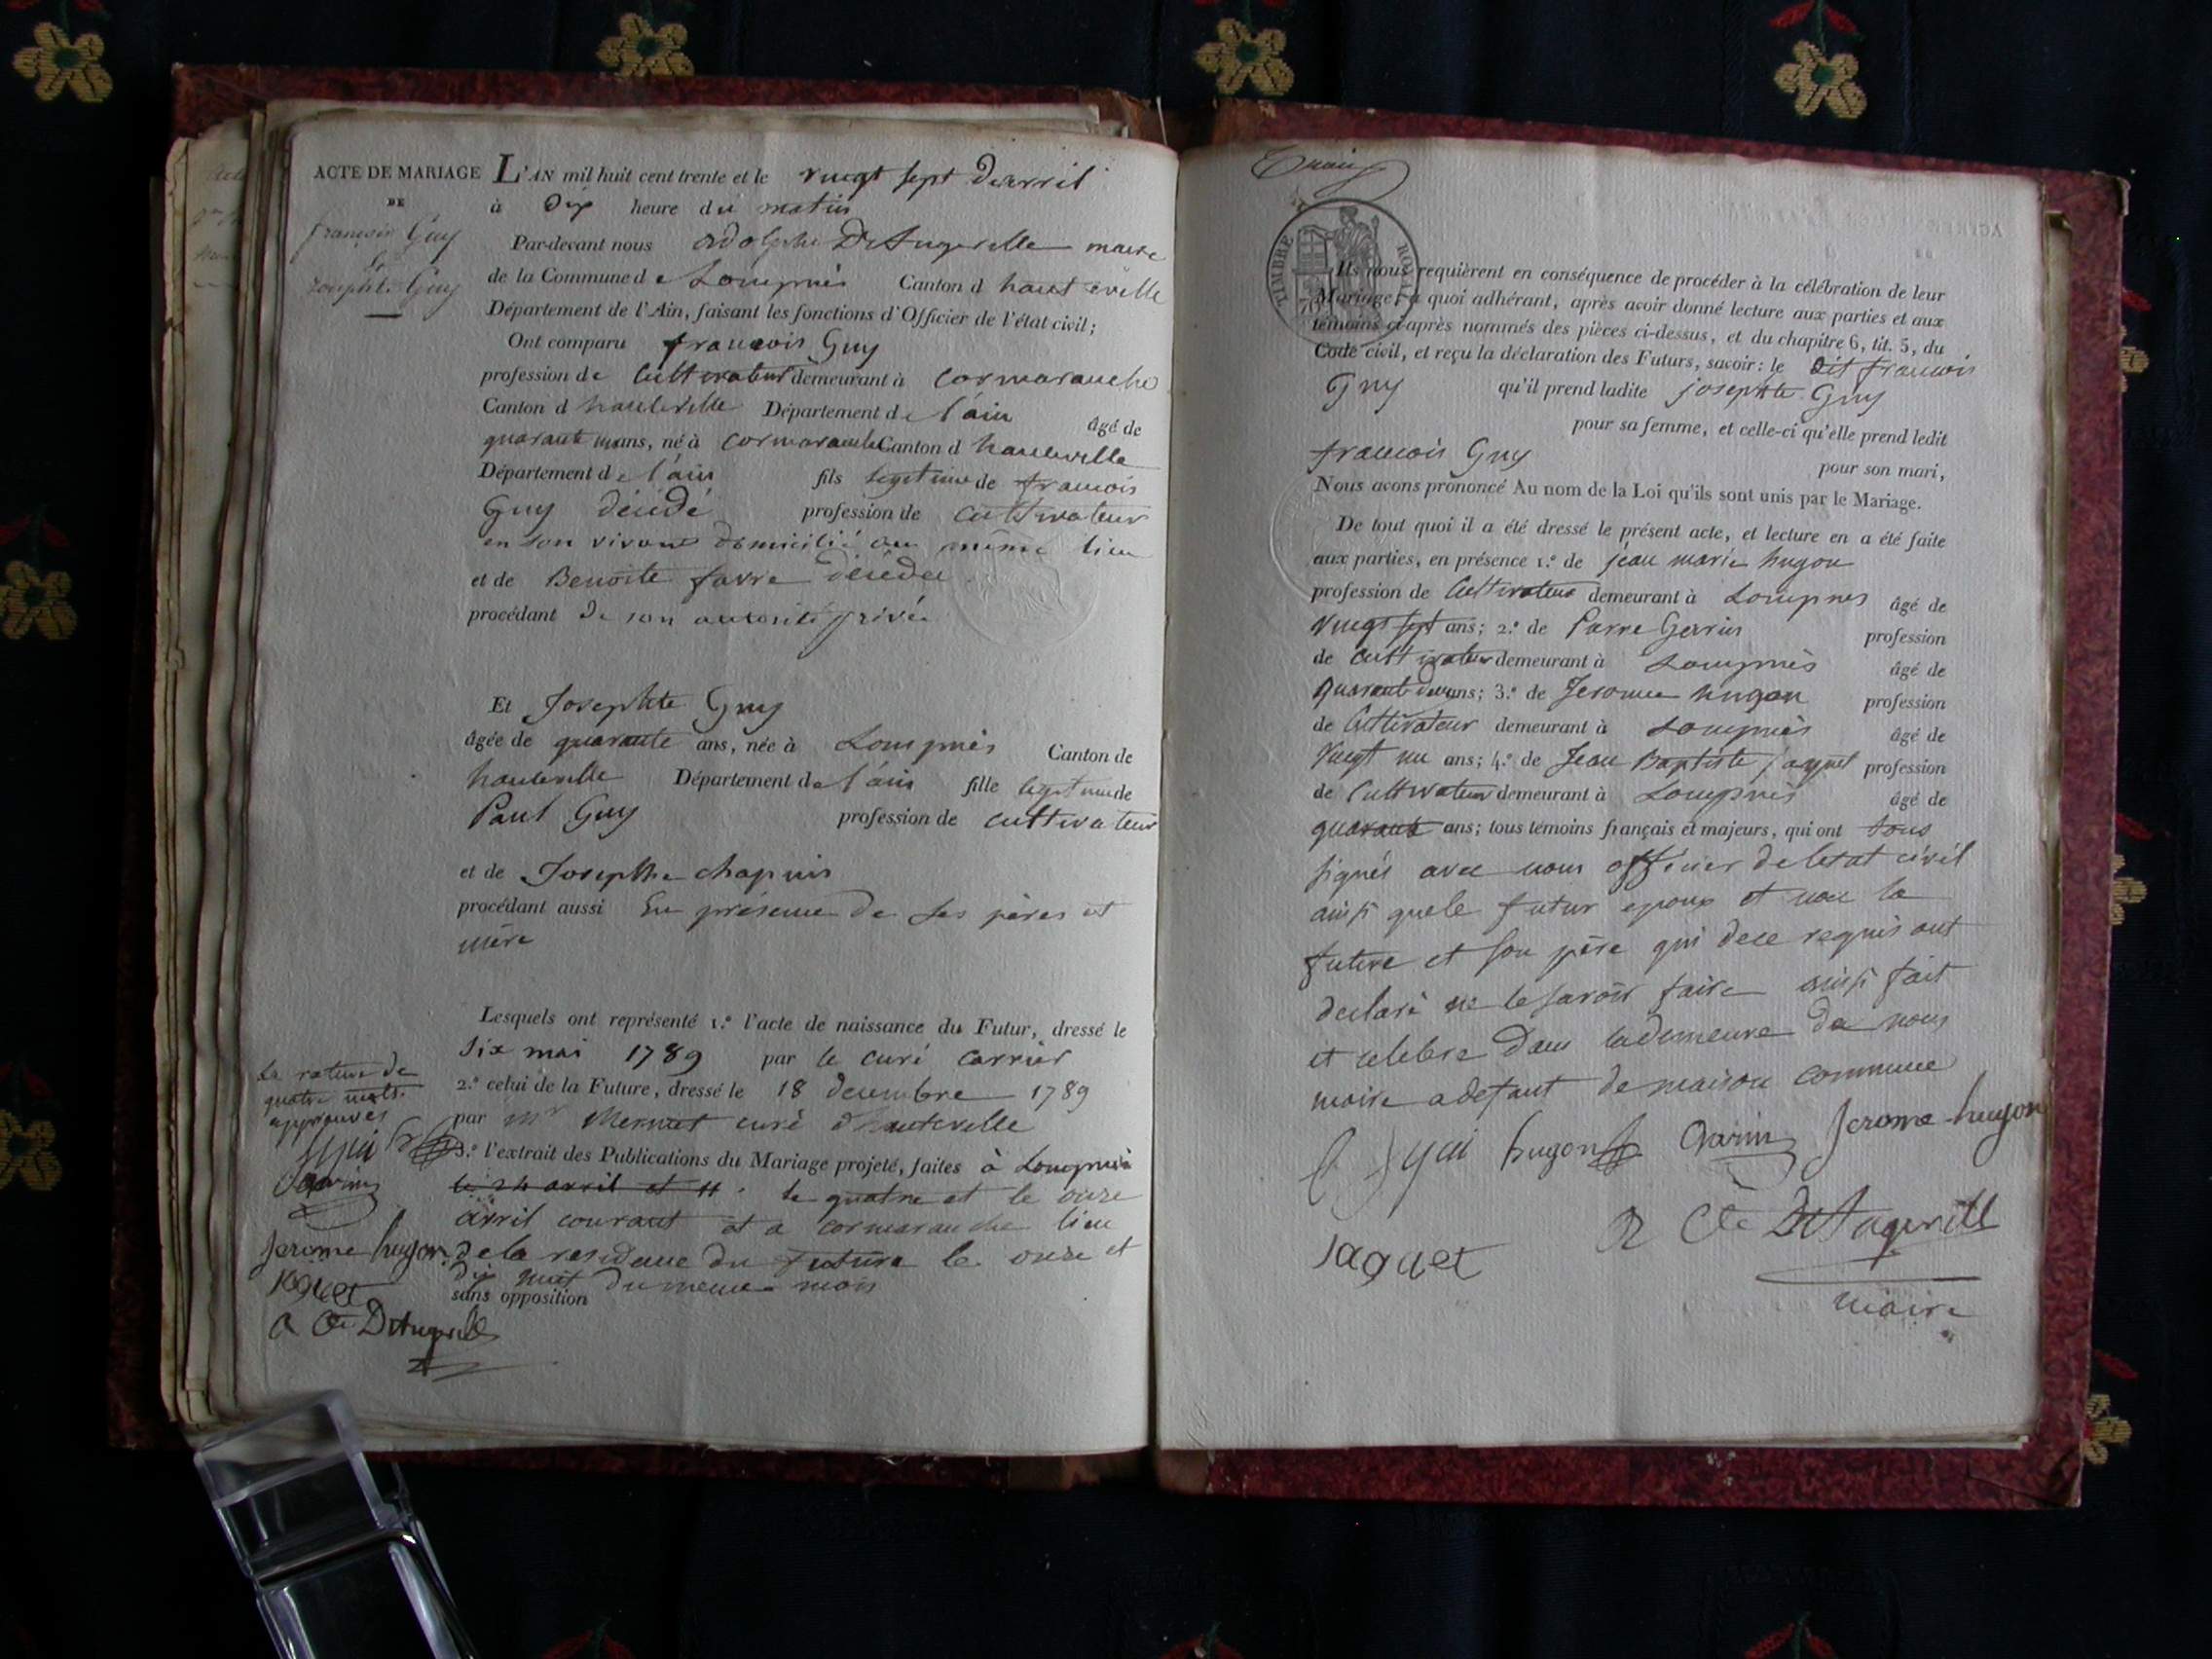 ACTE DE MARIAGE
DE
françois Guy
&
Josephte Guy
L'AN mil huit cent trente et le vingt sept d'avril
à Dix heure du matin
Par-devant nous adolphe DeAngeville maire
de la Commune de Lompnès Canton d hauteville
Département de l'Ain, faisant les fonctions d'Officier de l'état civil;
Ont comparu francois Guy
profession de Cultivateur demeurant à cormaranche
Canton d hauteville Département de l'ain âgé de
quarante ans, né à cormaranche Canton d hauteville
Département de l'ain fils legitime de francois
Guy décédé profession de cultivateur
en son vivant domicilié au même lieu
et de Benoite favre décédée
procédant de son autorité privée
Et Josephte Guy
âgée de quarante ans, née à Lompnès Canton de
hauteville Département de l'ain fille legitime de
Paul Guy profession de cultivateur
et de Josephte chapuis
procédant aussi En présence de ses pères et
mère
Lesquels ont représenté 1.º l'acte de naissance du Futur, dressé le
six mai 1789 par le curé Carrier
2.º celui de la Future, dressé le 18 decembre 1789
par mr curé d'hauteville
3.º l'extrait des Publications du Mariage projeté, faites à Lompnès
le 24 avril et 11 . le quatre et le onze
avril courant et a cormaranche lieu
de la residence du future le onze et
dix huit du meme mois
sans opposition
la rature de
quatre mots
approuvés
gyui
Garin
Jerome hugon
jaquet
a Cte DeAngeville
TIMBRE ROYAL
Ils nous requièrent en conséquence de procéder à la célébration de leur
Mariage; à quoi adhérant, après avoir donné lecture aux parties et aux
témoins ci-après nommés des pièces ci-dessus, et du chapitre 6, tit. 5, du
Code civil, et reçu la déclaration des Futurs, savoir: le dit francois
Guy qu'il prend ladite josephte Guy
pour sa femme, et celle-ci qu'elle prend ledit
francois Guy pour son mari,
Nous avons prononcé Au nom de la Loi qu'ils sont unis par le Mariage.
De tout quoi il a été dressé le présent acte, et lecture en a été faite
aux parties, en présence 1.º de jean marie hugon
profession de Cultivateur demeurant à Lompnes âgé de
vingt sept ans; 2.º de profession
de cultivateur demeurant à Lompnès âgé de
quarante deux ans; 3.º de Jerome hugon profession
de Cultivateur demeurant à Lompnès âgé de
vingt un ans; 4.º de Jean Baptiste jaquet profession
de Cultivateur demeurant à Lompnès âgé de
quarante ans; tous témoins français et majeurs, qui ont tous
signés avec nous officier de letat civil
ainsi quele futur epoux et non la
future et son père qui dece requis ont
declaré ne le savoir faire ainsi fait
et celebre dans lademeure de nous
maire adefaut de maison commune
gyui hugon Garin Jerome hugon
jaquet a Cte DeAngeville
maire